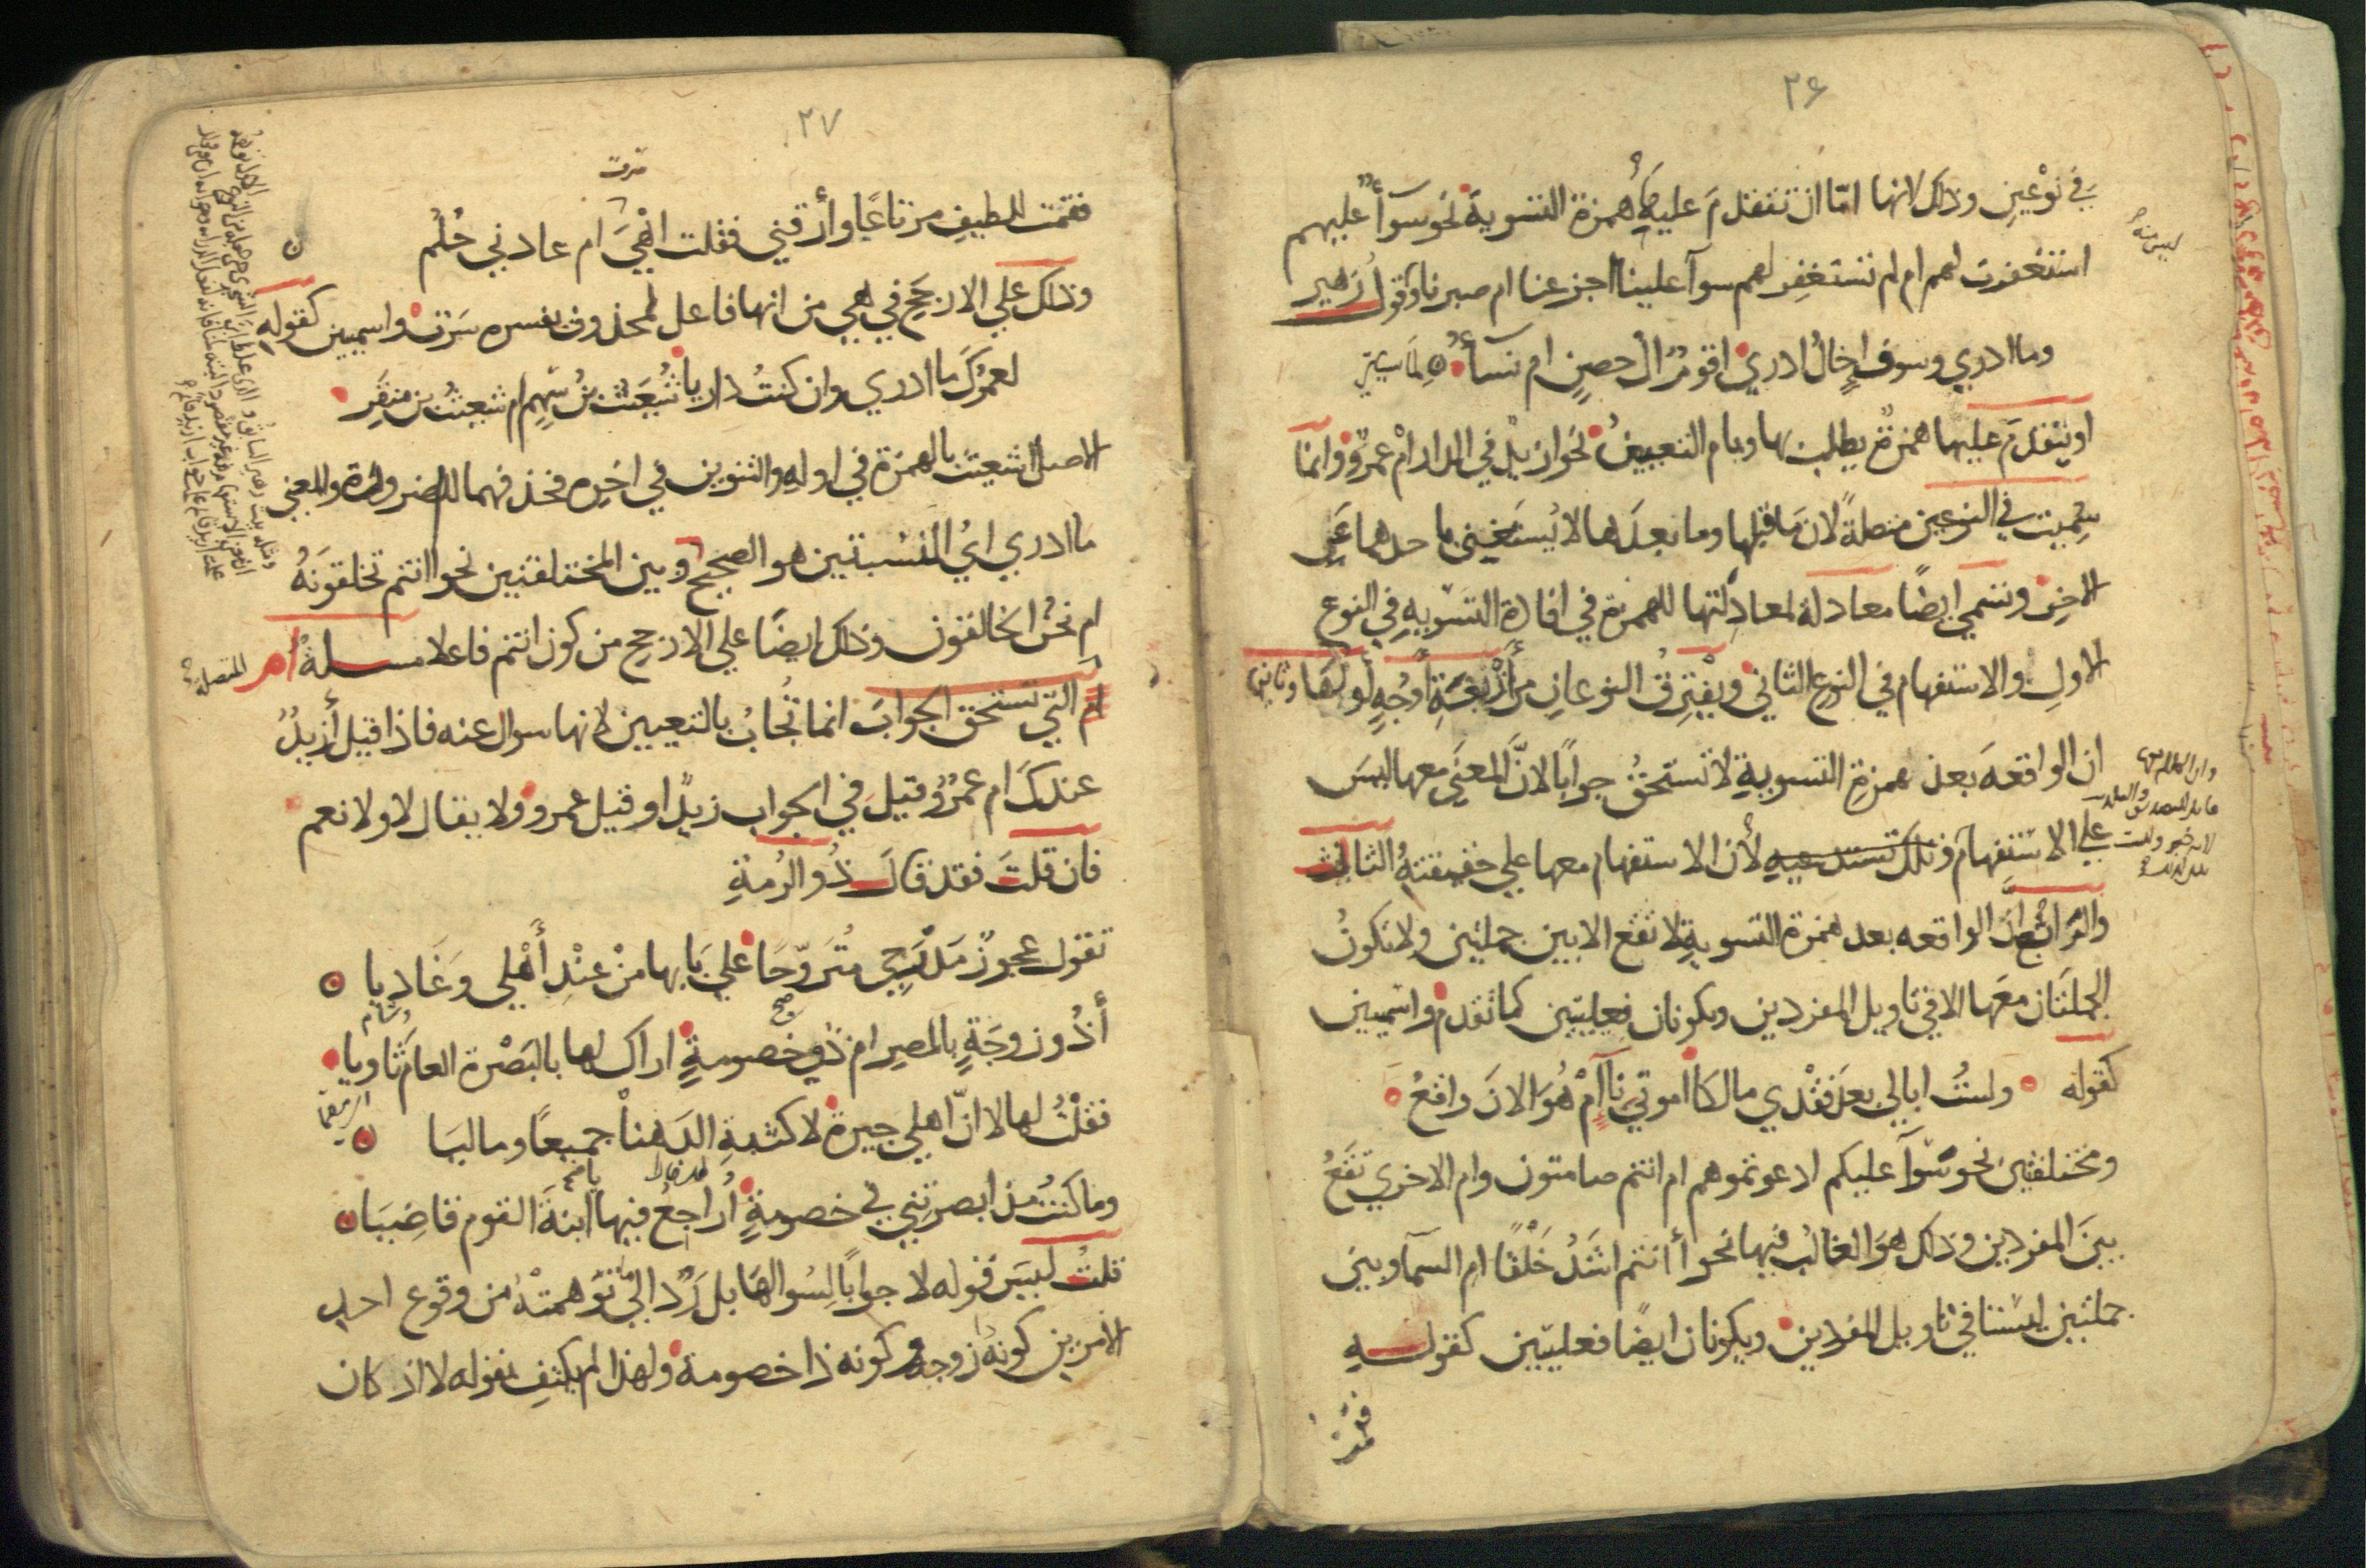 ٢۶
في نوعين وذلك لانها امّا ان تتقدم عليها همزة التسوية نحو سوآءٌ عليهم
استغفرت لهم ام لم تستغفر لهم سوآ علينا اجزعنا ام صبرنا وقول زهير
وما ادري وسوف اِخالُ ادري اقومٌ الُ حصنٍ ام نسآءُ
او يتقدمَ عليها همزةٌ يطلب بها وبام التعيينُ نحو ازيدٌ في الدار امْ عمروٌ وانما
سُمِّيت في النوعين متصلةً لان ما قبلها وما بعدَها لا يُستَغنى باحدهما عن
الاخر وتسمى ايضًا معادلة لمعادلتها للهمزة في افادة التسوية في النوع
الاولِ والاستفهام في النوع الثاني ويفترقُ النوعانِ من أربعةِ اوجهٍ أولها وثانيها
ان الواقعهَ بعد همزةِ التسويةِ لا تستحقُ جوابًا لانَّ المعنَى معها ليسَ
على الاستفهام وتلك تستدعيهِ لأن الاستفهام معها على حقيقتهِ الثالث
والرابعُ أنَّ الواقعه بعد همزة التسويةِ لا تقع الا بين جملتين ولا تكونُ
الجملتان معَها الا في تاويل المفردين وتكونان فعليتين كما تقدم واسميتين
كقوله ولستُ ابالي بعدَ فقْدي مالكًا اموتي ناآءٍ أمْ هُوَ الانَ واقعُ
ومختلفتين نحو سَوآ عليكم ادعوتموهم ام انتم صامتون وام الاخرى تقعُ
بينَ المفردين وذلك هوَ الغالبُ فيها نحو أانتم اشَدُ خَلْقًا امِ السمآ وبين
جملتين ليستا في تاويل المفردين ويكونان ايضًا فعليتين كقولهِ
فقمت
٢٧
فقمت للطيفِ مرتاعًا وأرقني فقلت اهْيَ ام عادني حُلُم
وذلك على الارجح في هي من انها فاعل لمحذوف يفسره سَرَت واسميتين كقولهِ
لعمرُكَ ما ادري وان كنتُ داريا شُعَيثُ بنُ سَهمٍ ام شعيثُ بن منقَرِ
الاصل اشعيثٌ بالهمزة في اولهِ والتنوين في اخرِه فحذفهما للضرورة والمعنى
ما ادري ايُ النسبتين هو الصحيح وبين المختلفتين نحو اانتم تخلقونَهُ
ام نحنُ الخالقون وذلك ايضًا على الارجح من كون انتم فاعلا مسلةٌ ام المتصلة
ام التي تستحق الجوابَ انما تُجابُ بالتعيين لانها سوال عنه فاذا قيل أزيدٌ
عندكَ ام عمرٌو قيلَ في الجواب زيدٌ او قيل عمرو ولا يقال لا ولا نعم
فان قلتَ فقد قالَ ذُو الرُمةِ
تقول عجوزٌ مَدْرَجِي مُتَروّحًا على بَابها منْ عِنْدِ أَهْلي وَغَاديا
أذُو زوجَةٍ بالمصرِ ام ذو خصومةٍ اراك لها بالبَصْرة العامَ ثاويا
فقلْتُ لها لا انّ اهلي جيرةٌ لاكثبةِ الدَهنا جميعًا وماليَا
وما كنتُ مذ ابصرتِني في خصومةٍ أُراجعُ فيها ابنةَ القوم قاضيَا
قلتُ ليسَ قوله لا جوابًا لِسُوالها بل رَدٌ الى توَهمتْهُ من وقوع احدِ
الأمرين كونهُ زوجه وكونه ذا خصومة ولهذا لم يكتفِ بقوله لا اذ كان